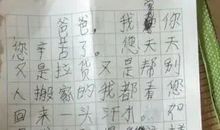 爸爸，我 你
您辛苦了。您天天
又是拉货又是帮别
人搬家的我都看您
回来一头汗 您如